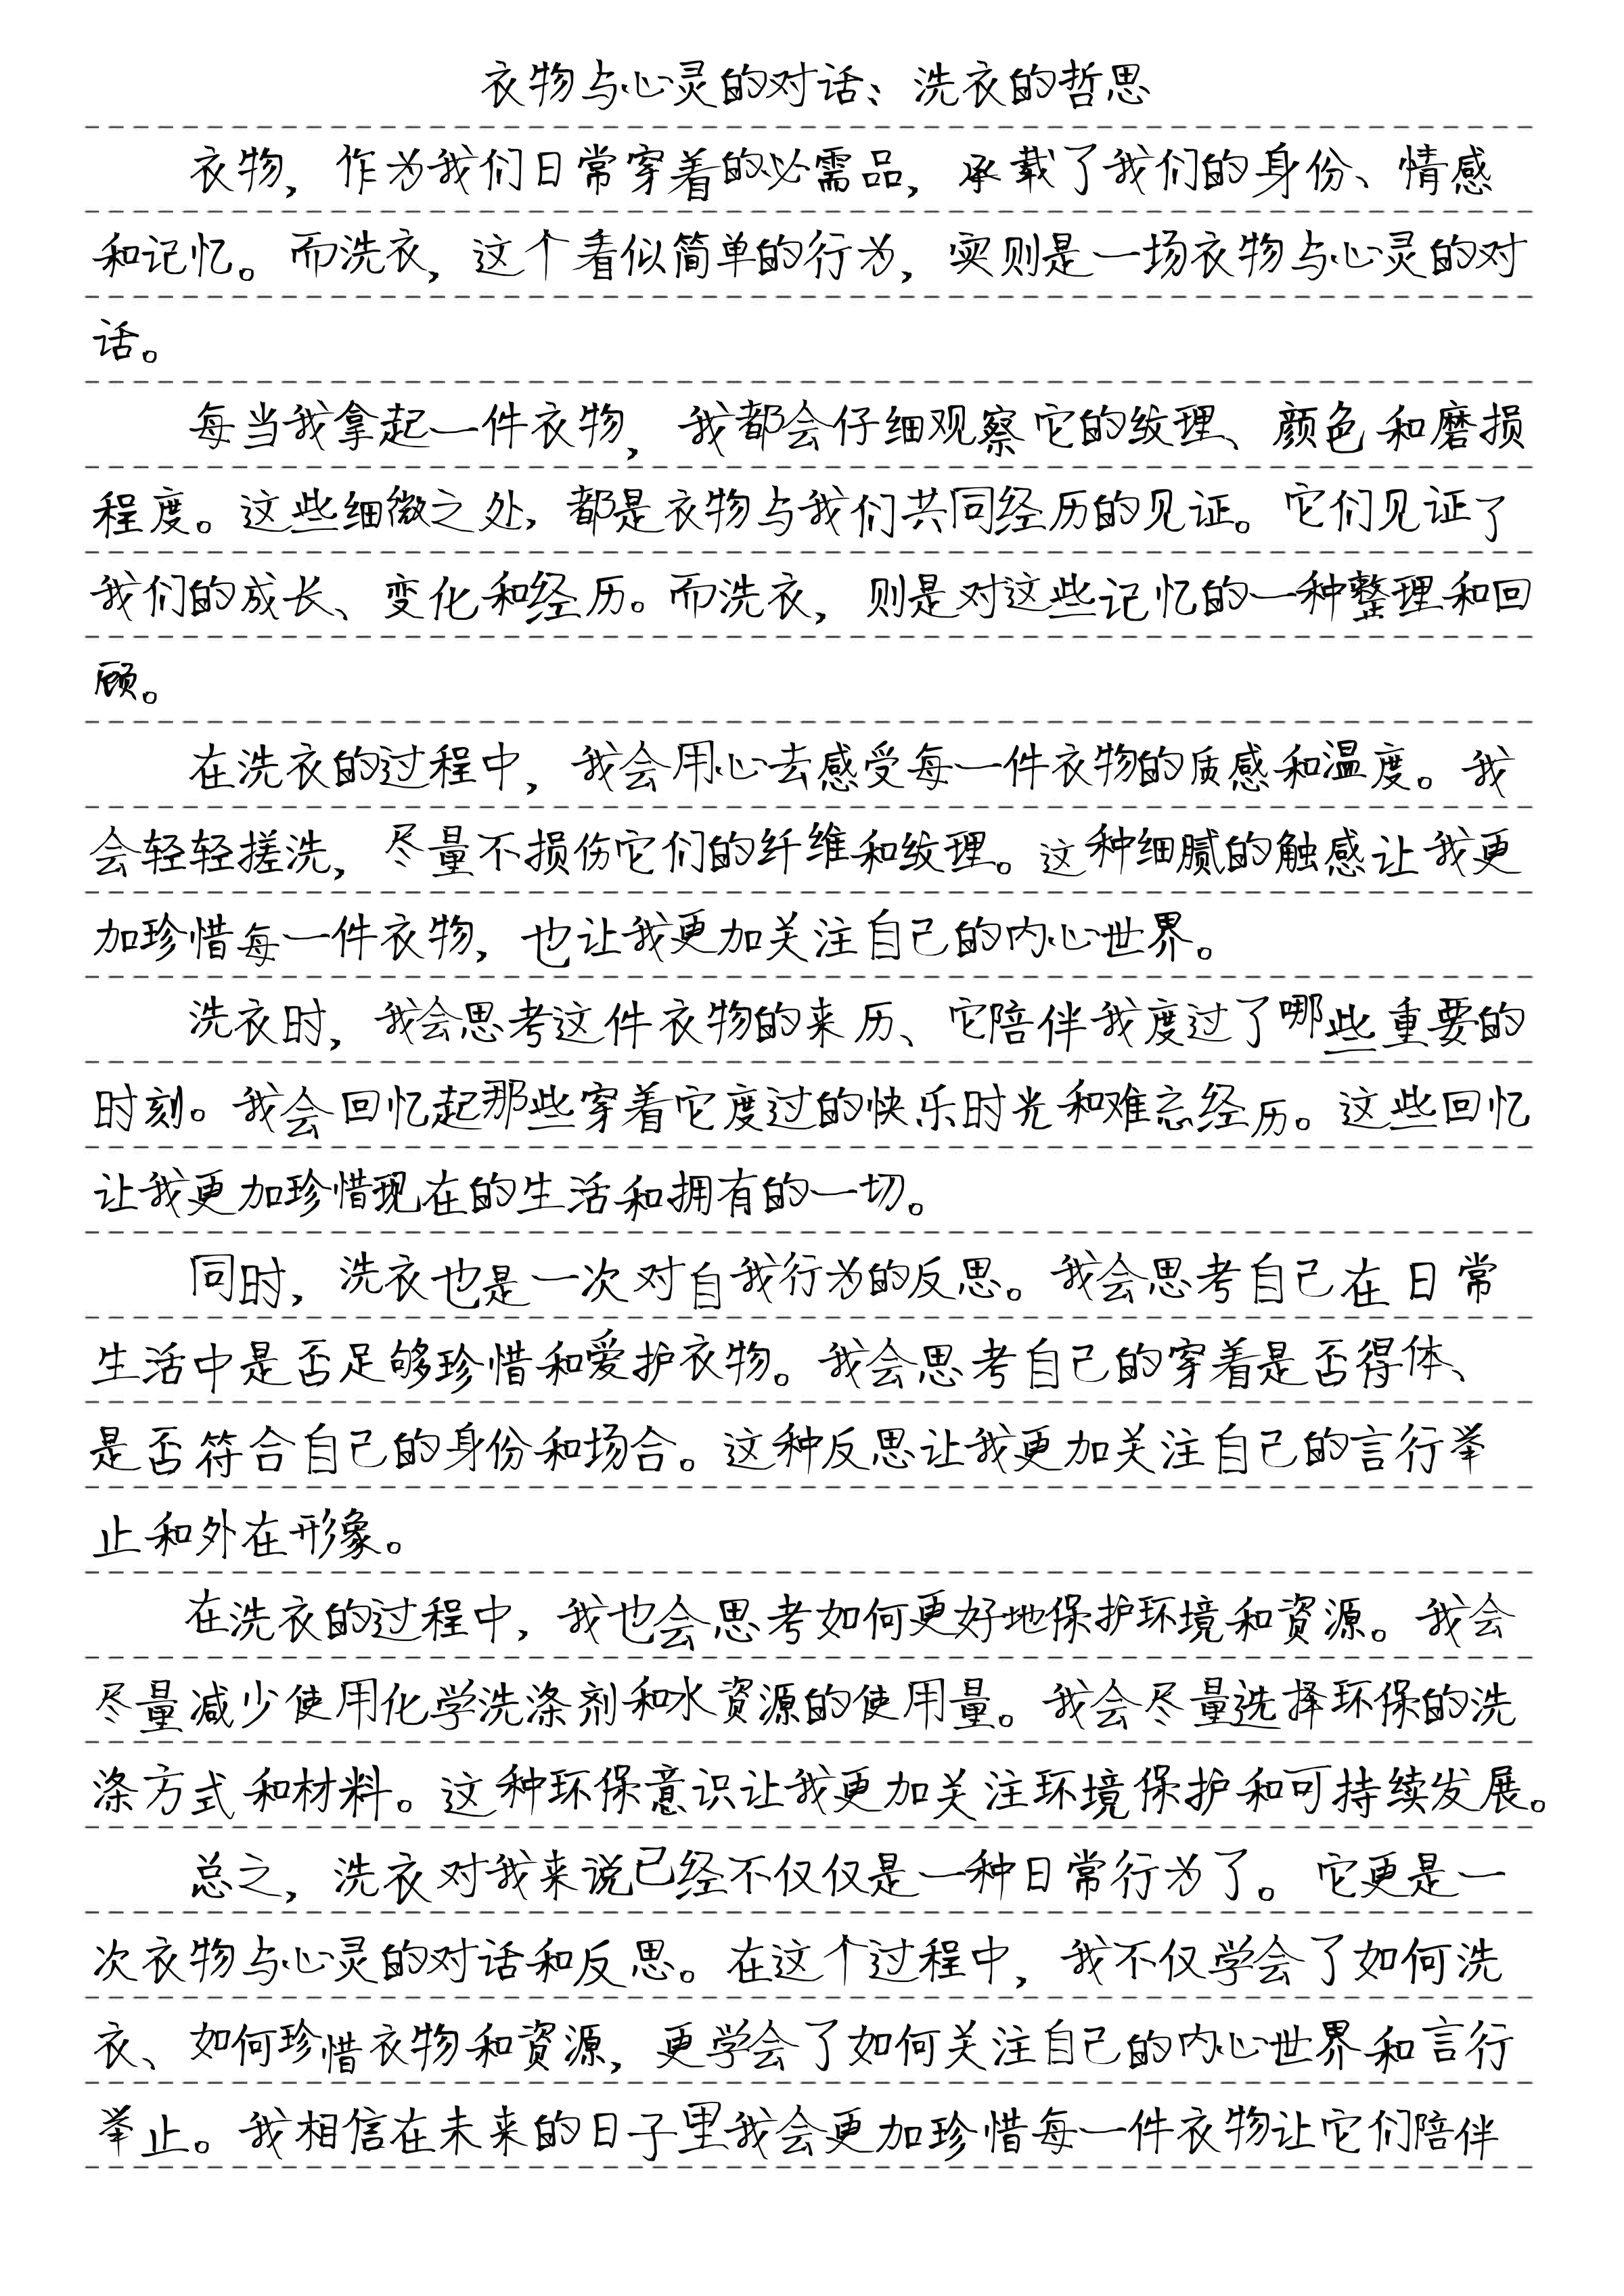 衣物与心灵的对话：洗衣的哲思
衣物，作为我们日常穿着的必需品，承载了我们的身份、情感
和记忆。而洗衣，这个看似简单的行为，实则是一场衣物与心灵的对
话。
每当我拿起一件衣物，我都会仔细观察它的纹理、颜色和磨损
程度。这些细微之处，都是衣物与我们共同经历的见证。它们见证了
我们的成长、变化和经历。而洗衣，则是对这些记忆的一种整理和回
顾。
在洗衣的过程中，我会用心去感受每一件衣物的质感和温度。我
会轻轻搓洗，尽量不损伤它们的纤维和纹理。这种细腻的触感让我更
加珍惜每一件衣物，也让我更加关注自己的内心世界。
洗衣时，我会思考这件衣物的来历、它陪伴我度过了哪些重要的
时刻。我会回忆起那些穿着它度过的快乐时光和难忘经历。这些回忆
让我更加珍惜现在的生活和拥有的一切。
同时，洗衣也是一次对自我行为的反思。我会思考自己在日常
生活中是否足够珍惜和爱护衣物。我会思考自己的穿着是否得体、
是否符合自己的身份和场合。这种反思让我更加关注自己的言行举
止和外在形象。
在洗衣的过程中，我也会思考如何更好地保护环境和资源。我会
尽量减少使用化学洗涤剂和水资源的使用量。我会尽量选择环保的洗
涤方式和材料。这种环保意识让我更加关注环境保护和可持续发展。
总之，洗衣对我来说已经不仅仅是一种日常行为了。它更是一
次衣物与心灵的对话和反思。在这个过程中，我不仅学会了如何洗
衣、如何珍惜衣物和资源，更学会了如何关注自己的内心世界和言行
举止。我相信在未来的日子里我会更加珍惜每一件衣物让它们陪伴